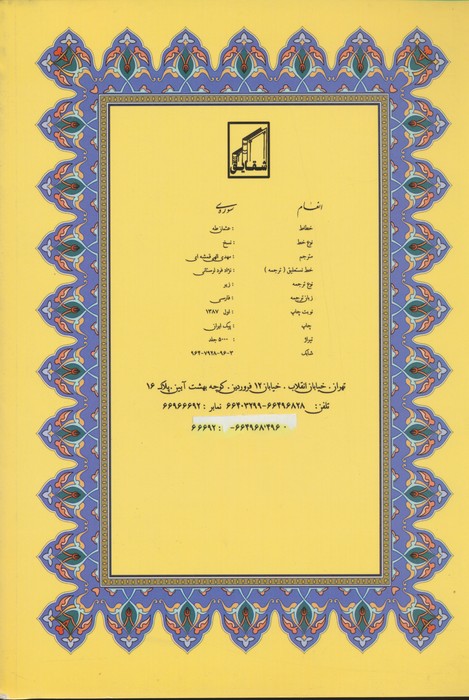 شقایق
سوره‌ی انعام
خطاط : عثمان طه
نوع خط : نسخ
مترجم : مهدی الهی قمشه ای
خط نستعلیق ( ترجمه ) : نژاد فرد لرستانی
نوع ترجمه : زیر
زبان ترجمه : فارسی
نوبت چاپ : اول ۱۳۸۷
چاپ : پیک ایران
تیراژ : ۵۰۰۰ جلد
شابک : ۹۶۴-۷۹۲۸-۰۹۶-۳
تهران . خیابان انقلاب . خیابان ۱۲ فروردین . کوچه بهشت آیین . پلاک ۱۶
تلفن : ۶۶۴۹۶۸۲۸-۶۶۴۰۳۲۹۹ نمابر : ۶۶۹۶۶۶۹۲